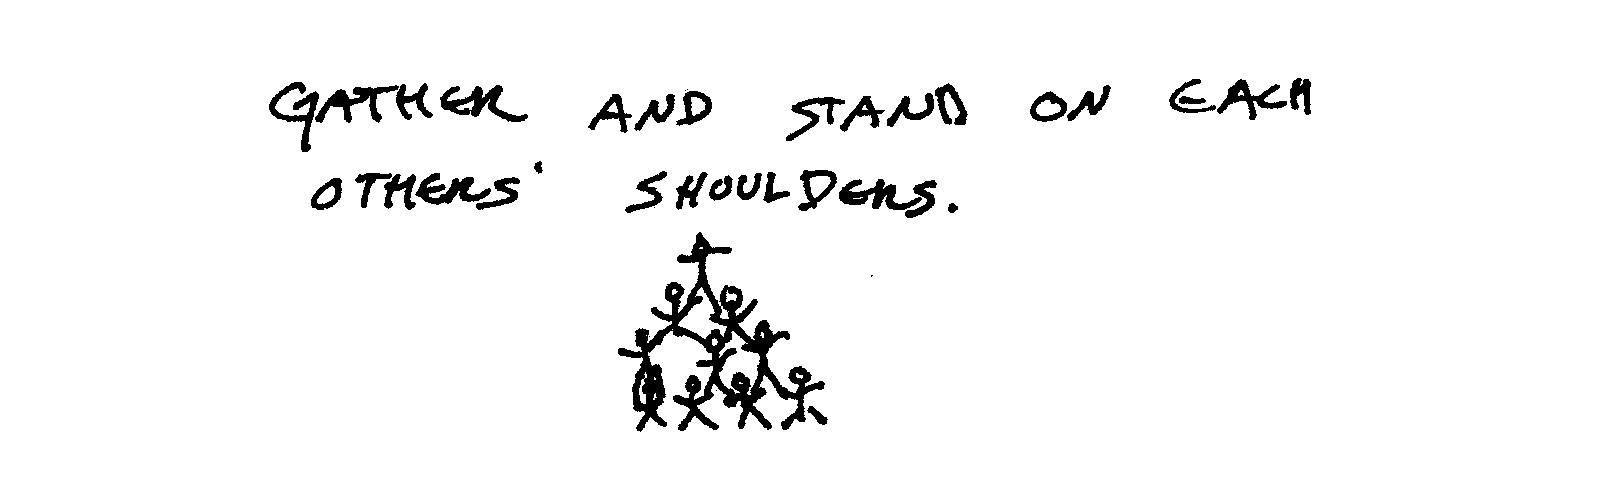 GATHER AND STAND ON EACH
OTHERS' SHOULDERS.